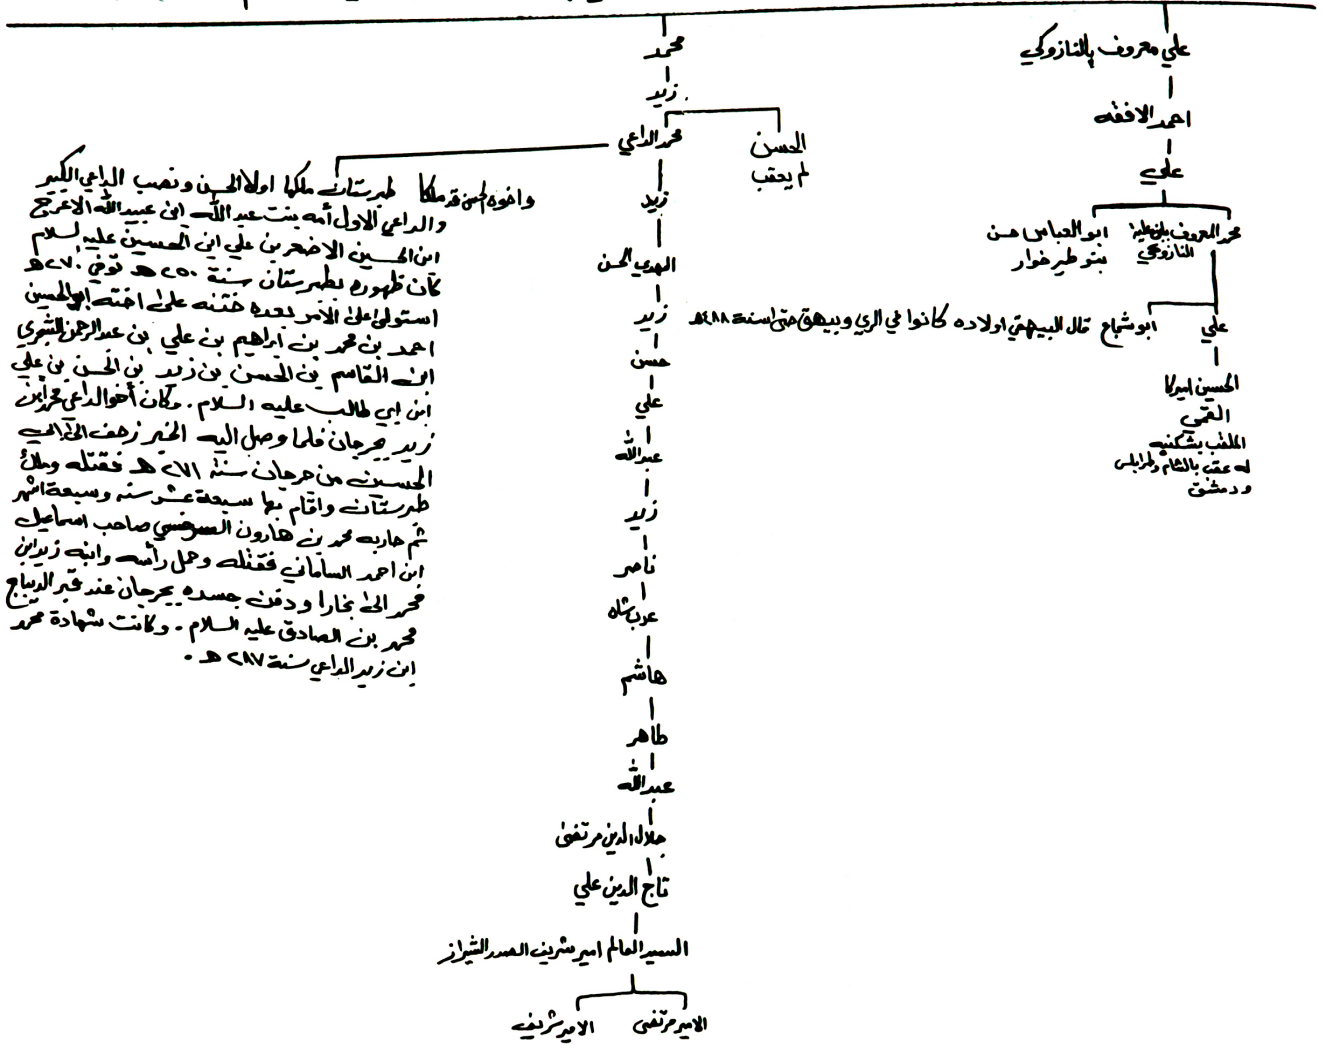 علي معروف بالنازوكي
احمد الافقه
علي
محمد المعروف بابن علية
النازوكي
ابو العباس حسن
بنو طير خوار
علي
ابو شجاع قال البيهقي اولاده كانوا في الري وبيهق حتى سنة ٤٨٨هـ
الحسين اميركا
القمي
الملقب بشكنبه
له عقب بالشام وطرابلس
ودمشق
محمد
زيد
الحسن
لم يعقب
محمد الداعي
زيد
المهدي الحسن
زيد
حسن
علي
عبدالله
زيد
ناصر
عرب شاه
هاشم
طاهر
عبدالله
جلال الدين مرتضى
تاج الدين علي
السيد العالم امير شريف الصدر الشيراز
الامير مرتضى
الامير شريف
واخوه الحسن قد ملكا طبرستان ملكها اولا الحسن ونصب الداعي الكبير
والداعي الاول أمه بنت عبدالله ابن عبيدالله الاعرج
ابن الحسين الاصغر بن علي ابن الحسين عليه السلام
كان ظهوره بطبرستان سنة ٢٥٠هـ توفي ٢٧٠هـ
استولى على الأمر بعده ختنه على اخته ابو الحسين
احمد بن محمد بن ابراهيم بن علي بن عبدالرحمن الشجري
ابن القاسم بن الحسن بن زيد بن الحسن بن علي
ابن ابي طالب عليه السلام . وكان أخو الداعي محمد ابن
زيد بجرجان فلما وصل اليه الخبر زحف الى ابي
الحسين من جرجان سنة ٢٧١هـ فقتله وملك
طبرستان واقام بها سبعة عشر سنه وسبعة اشهر
ثم حاربه محمد بن هارون السرخسي صاحب اسماعيل
ابن احمد الساماني فقتله وحمل رأسه وابنه زيد ابن
محمد الى بخارا ودفن جسده بجرجان عند قبر الديباج
محمد بن الصادق عليه السلام . وكانت شهادة محمد
ابن زيد الداعي سنة ٢٨٧هـ .